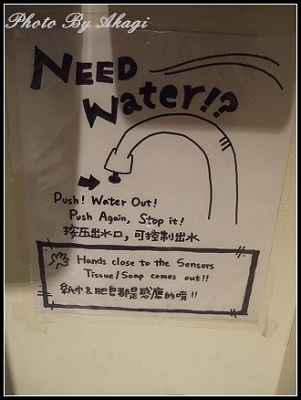 Photo By Akagi
NEED
Water!?
Push! Water Out!
Push Again, Stop it!
按压出水口，可控制出水
Hands close to the Sensors
Tissue/Soap comes out!!
紙巾&肥皂都是感應的唷!!